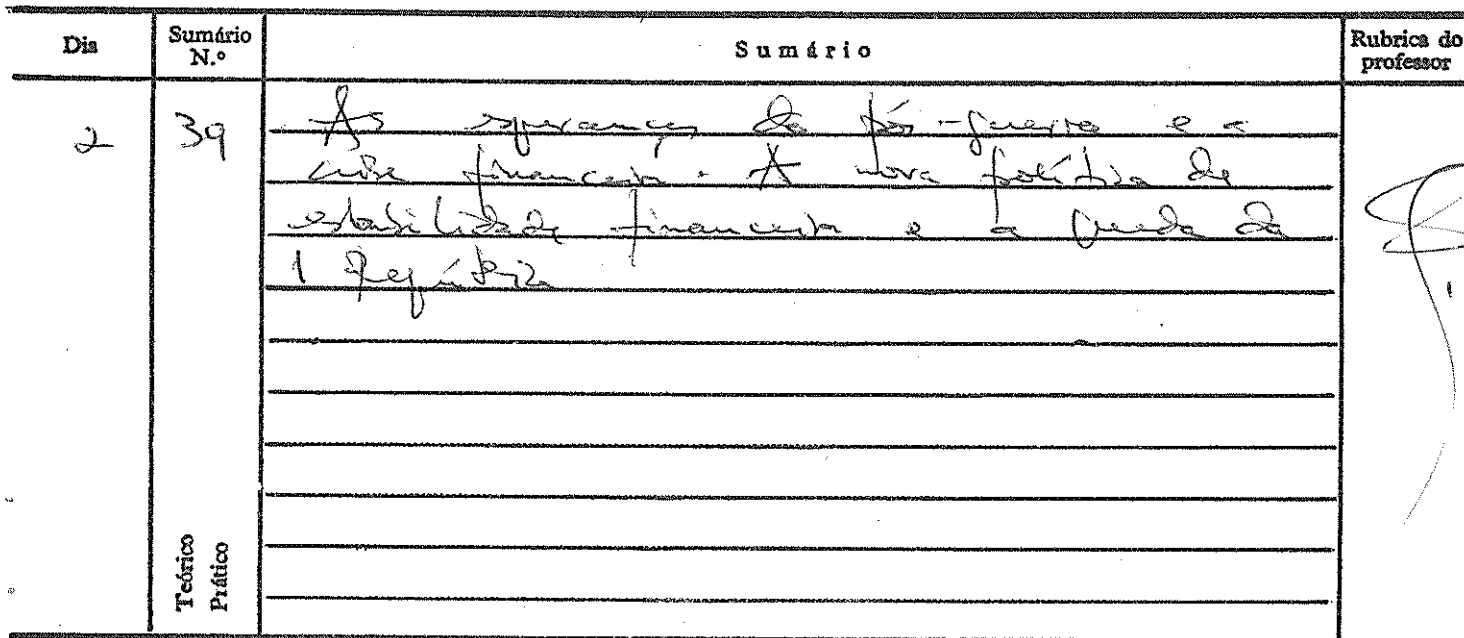 Dia Sumário N.º Sumário Rubrica do professor
2 39 As esperanças do pós-guerra e a
crise financeira. A nova política de
estabilidade financeira e a queda da
1 República
Teórico
Prático